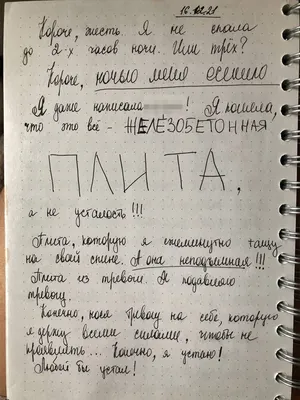 16.02.21
Короче, жесть. Я не спала
до 2-х часов ночи. Или трёх?
Короче, ночью меня осенило
Я даже написала ! Я поняла,
что это всё - ЖЕЛЕЗОБЕТОННАЯ
ПЛИТА,
а не усталость!!!
Плита, которую я ежеминутно тащу
на своей спине. А она неподъёмная!!!
Плита из тревоги. Я подавляю
тревогу.
Конечно, нося тревогу на себе, которую
я держу всеми силами, чтобы не
проявлять... Конечно, я устаю!
Любой бы устал!